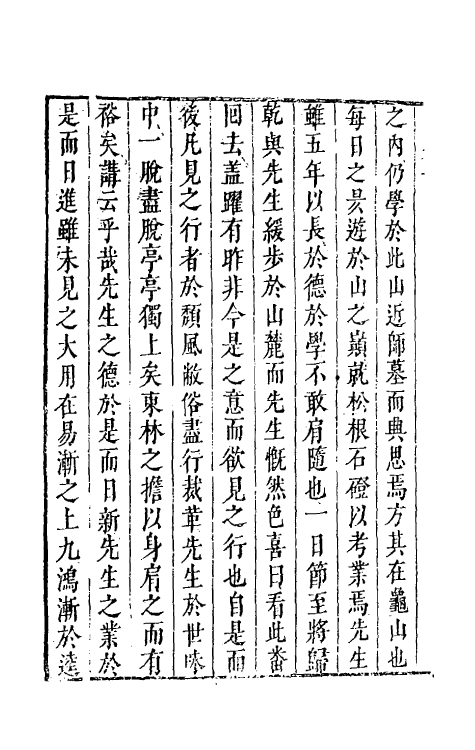 之內仍學於此山近師墓而典思焉方其在龜山也
每日之昃遊於山之巔就松根石磴以考業焉先生
雖五年以長於德於學不敢肩隨也一日節至將歸
乾與先生緩步於山麓而先生慨然色喜曰看此番
回去盖躍有昨非今是之意而欲見之行也自是而
後凡見之行者於頹風敝俗盡行裁革先生於世味
中一脫盡脫亭亭獨上矣東林之擔以身肩之而有
裕矣講云乎哉先生之德於是而日新先生之業於
是而日進雖未見之大用在易漸之上九鴻漸於逵